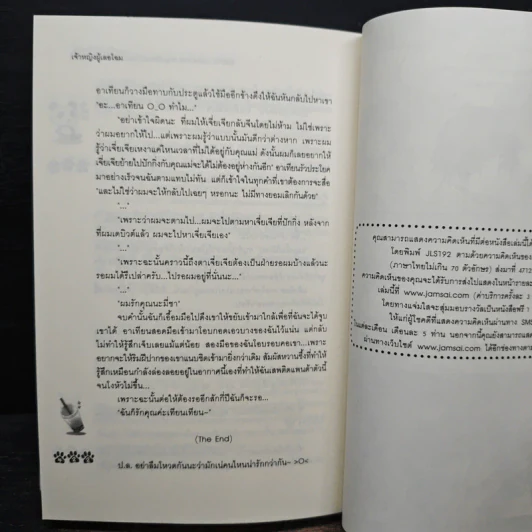 เจ้าหญิงผู้เลอโฉม
อาเทียนก็วางมือทาบกับประตูแล้วใช้มืออีกข้างดึงให้ฉันหันกลับไปหาเขา
"อะ...อาเทียน O_O ทำไม..."
"อย่าเข้าใจผิดนะ ที่ผมให้เจี่ยเจียกลับจีนโดยไม่ห้าม ไม่ใช่เพราะ
ว่าผมอยากให้ไป...แต่เพราะผมรู้ว่าแบบนั้นมันดีกว่าต่างหาก เพราะผม
รู้ว่าเจี่ยเจียเหงาแค่ไหนเวลาที่ไม่ได้อยู่กับคุณแม่ ดังนั้นผมก็เลยอยากให้
เจี่ยเจียย้ายไปปักกิ่งกับคุณแม่จะได้ไม่ต้องอยู่ห่างกันอีก" อาเทียนรัวประโยค
มาอย่างเร็วจนฉันตามแทบไม่ทัน แต่ก็เข้าใจในทุกคำที่เขาต้องการจะสื่อ
"และไม่ใช่ว่าผมจะให้กลับไปเฉยๆ หรอกนะ ไม่มีทางยอมเลิกกันด้วย"
"..."
"เพราะว่าผมจะตามไป...ผมจะไปตามหาเจี่ยเจียที่ปักกิ่ง หลังจาก
ที่ผมเดบิวต์แล้ว ผมจะไปหาเจี่ยเจียเอง"
"..."
"เพราะฉะนั้นคราวนี้ถึงตาเจี่ยเจียต้องเป็นฝ่ายรอผมบ้างแล้วนะ
รอผมได้รึเปล่าครับ...ไปรอผมอยู่ที่นั่นนะ..."
"..."
"ผมรักคุณนะมี่ซา"
จบคำนั้นฉันก็เอื้อมมือไปดึงเขาให้ขยับเข้ามาใกล้เพื่อที่ฉันจะได้จูบ
เขาได้ อาเทียนสอดมือเข้ามาโอบกอดเอวบางของฉันไว้แน่น แต่กลับ
ไม่ทำให้รู้สึกเจ็บเลยแม้แต่น้อย สองมือของฉันโอบรอบคอเขา...เพราะ
อยากจะให้ริมฝีปากของเขาแนบชิดเข้ามายิ่งกว่าเดิม สัมผัสหวานซึ้งที่ทำให้
รู้สึกเหมือนกำลังล่องลอยอยู่ในอากาศนี้เองที่ทำให้ฉันเสพติดแฟนตัวตัวนี้
จนโงหัวไม่ขึ้น...
เพราะฉะนั้นต่อให้ต้องรออีกสักกี่ปีฉันก็จะรอ...
"ฉันก็รักคุณค่ะเทียนเทียน~"
(The End)
ป.ล. อย่าลืมโหวตกันนะว่ามักเน่คนไหนน่ารักกว่ากัน~ >O<
คุณสามารถแสดงความคิดเห็นที่มีต่อหนังสือเล่มนี้ได้
โดยพิมพ์ JLS192 ตามด้วยความคิดเห็นของ
(ภาษาไทยไม่เกิน 70 ตัวอักษร) ส่งมาที่
ความคิดเห็นของคุณจะได้รับการส่งไปแสดงในหน้ารายละ
เล่มนี้ที่ www.jamsai.com (ค่าบริการครั้งละ 3
โดยทางแจ่มใสจะสุ่มมอบรางวัลเป็นหนังสือฟรี 1
ให้แก่ผู้โชคดีที่แสดงความคิดเห็นผ่านทาง SMS
ในแต่ละเดือน เดือนละ 5 ท่าน นอกจากนี้คุณยังสามารถแสด
ผ่านทางเว็บไซต์ www.jamsai.com ได้อีกช่องทาง